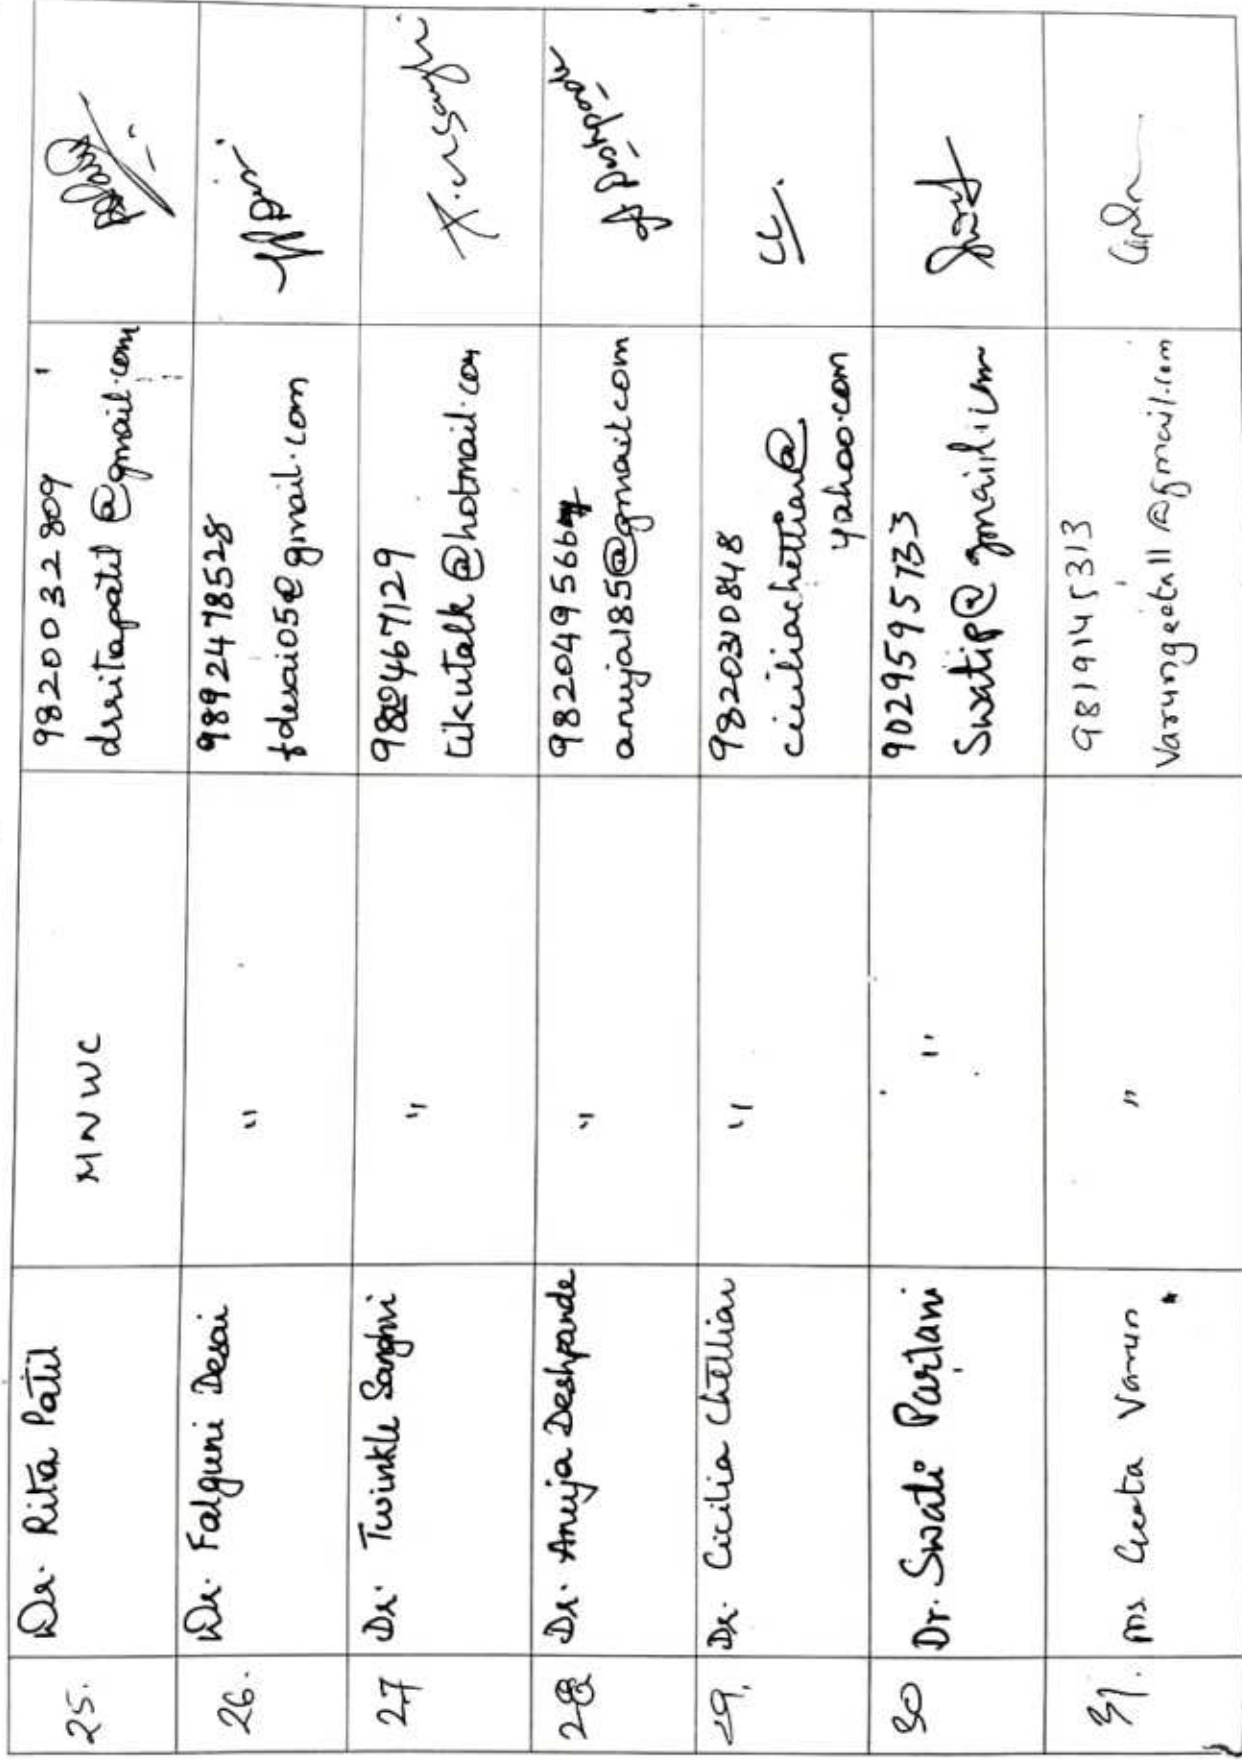 25.
Dr. Rita Patil
MNWC
9820032809
drritapatil@gmail.com
26.
Dr. Falguni Desai
"
9892478528
fdesai05@gmail.com
27
Dr. Twinkle Sanghvi
"
tikutalk@hotmail.com
28
Dr. Anuja Deshpande
"
anuja185@gmail.com
A Deshpande
29.
Dr. Cicilia Chettiar
"
ciciliachettiar@
yahoo.com
30
Dr. Swati Partani
"
9029595733
Swatip@gmail.com
31.
Ms. Geeta Varun
"
9819145313
Varungeeta11@gmail.com